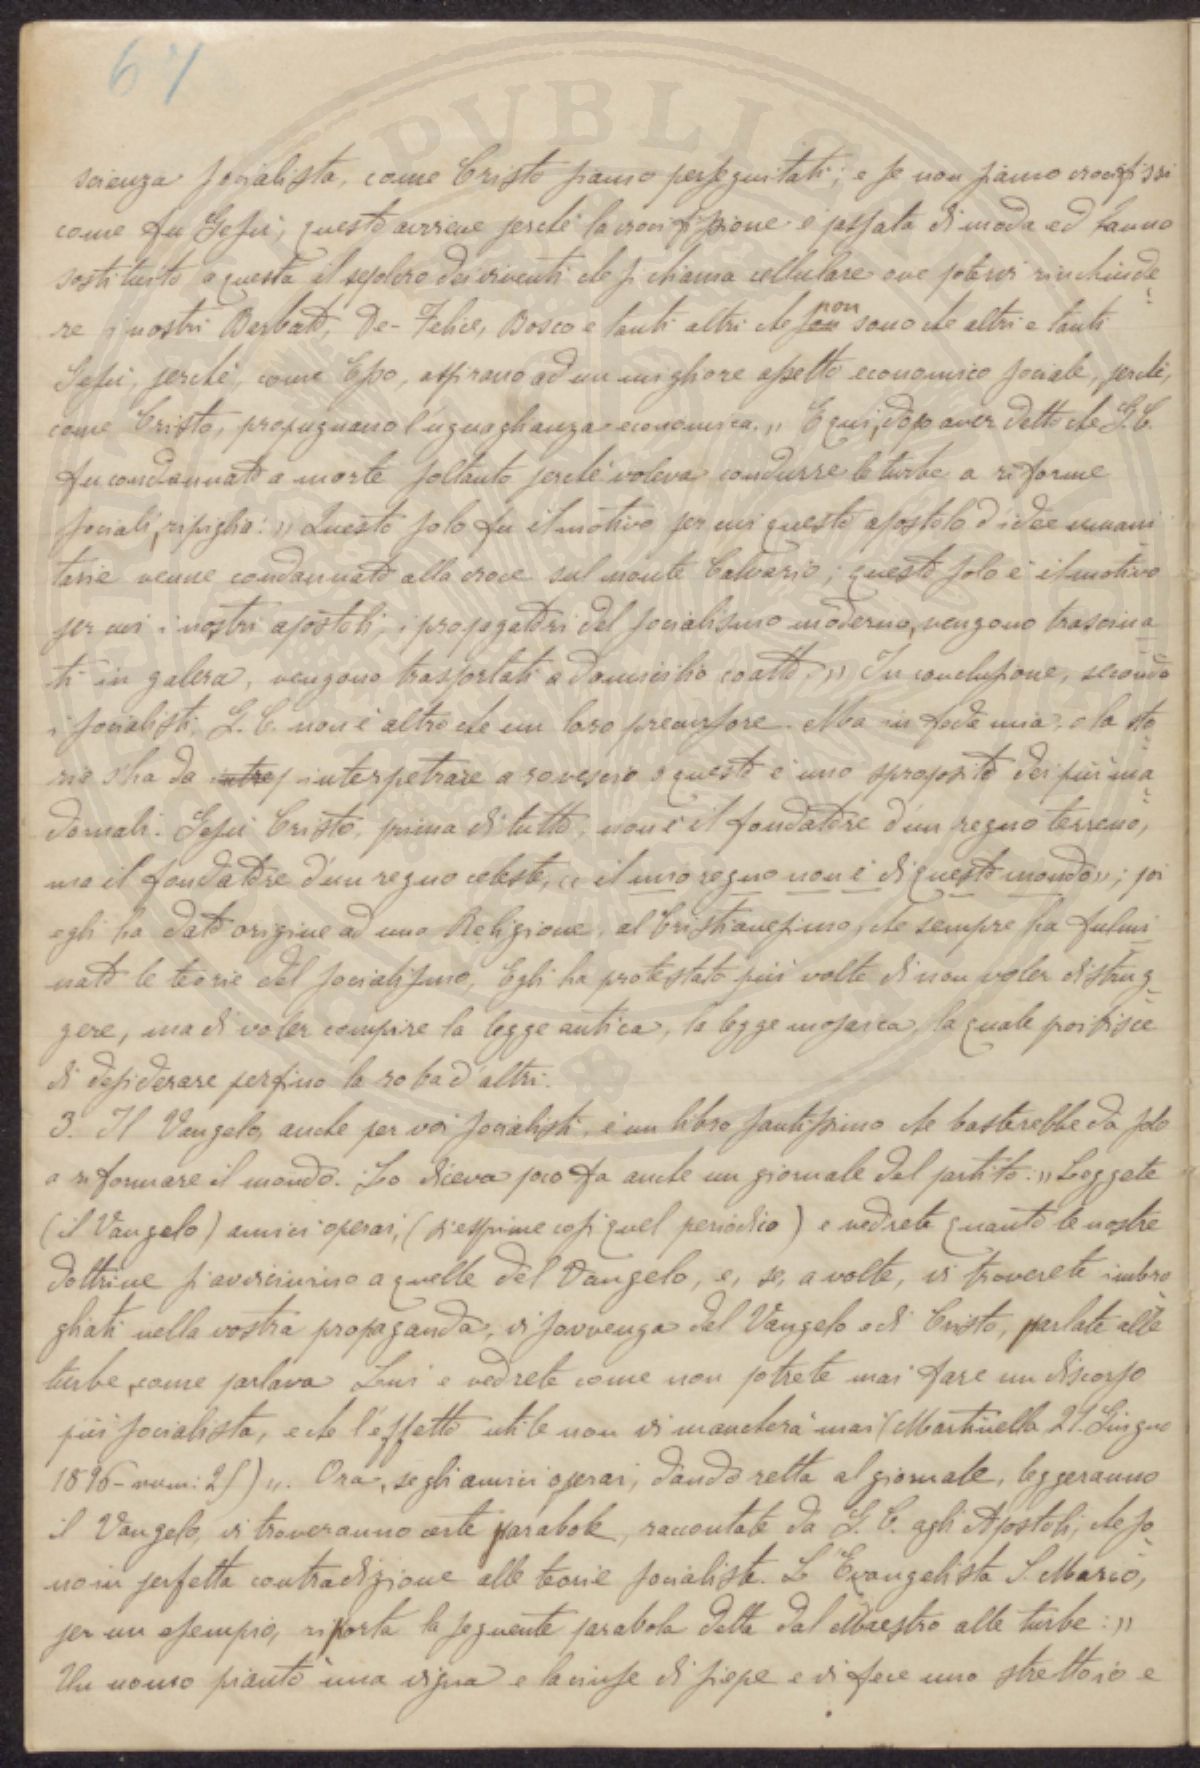 67
scienza socialista, come Cristo siamo perseguitati; e se non siamo crocifissi
come fu Gesù, questo avviene perchè la crocifissione è passata di moda ed hanno
sostituito a questa il sepolcro dei viventi che si chiama cellulare ove potervi rinchiude
re i nostri Barbato, De-Felice, Bosco e tanti altri che non sono che altri e tanti
Gesù, perchè, come Esso, aspirano ad un migliore assetto economico sociale, perchè,
come Cristo, propugnano l'uguaglianza economica. " E qui, dopo aver detto che G. C.
fu condannato a morte soltanto perchè voleva condurre le turbe a riforme
sociali, ripiglia: " Questo solo fu il motivo per cui questo apostolo d'idee umani
tarie venne condannato alla croce sul monte Calvario; questo solo è il motivo
per cui i nostri apostoli, i propagatori del socialismo moderno, vengono trascina
ti in galera, vengono trasportati a domicilio coatto. " In conclusione, secondo
i socialisti, G. C. non è altro che un loro precursore. Ma in fede mia, o la sto
ria s'ha da interpetrare a rovescio o questo è uno sproposito dei più ma
dornali. Gesù Cristo, prima di tutto, non è il fondatore d'un regno terreno,
ma il fondatore d'un regno celeste, " il mio regno non è di questo mondo"; poi
egli ha dato origine ad una Religione, al Cristianesimo, che sempre ha fulmi
nato le teorie del socialismo, Egli ha protestato più volte di non voler distrug
gere, ma di voler compire la legge antica, la legge mosaica, la quale proibisce
di desiderare persino la roba d'altri.
3. Il Vangelo, anche per voi socialisti, è un libro santissimo che basterebbe da solo
a riformare il mondo. Lo diceva poco fa anche un giornale del partito: " Leggete
(il Vangelo) amici operai, (si esprime così quel periodico) e vedrete quanto le nostre
dottrine si avvicinino a quelle del Vangelo, e, se, a volte, vi troverete imbro
gliati nella vostra propaganda, vi sovvenga del Vangelo e di Cristo, parlate alle
turbe, come parlava Lui e vedrete come non potrete mai fare un discorso
più socialista, e che l'effetto utile non vi mancherà mai (Martinella 21 Giugno
1896 - num: 25) ". Ora, se gli amici operai, dando retta al giornale, leggeranno
il Vangelo, vi troveranno certe parabole, raccontate da G. C. agli Apostoli, che so
no in perfetta contradizione alle teorie socialiste. L'Evangelista S. Marco,
per un esempio, riporta la seguente parabola detta dal Maestro alle turbe: "
Un uomo piantò una vigna e la cinse di siepe e vi fece uno strettoio e